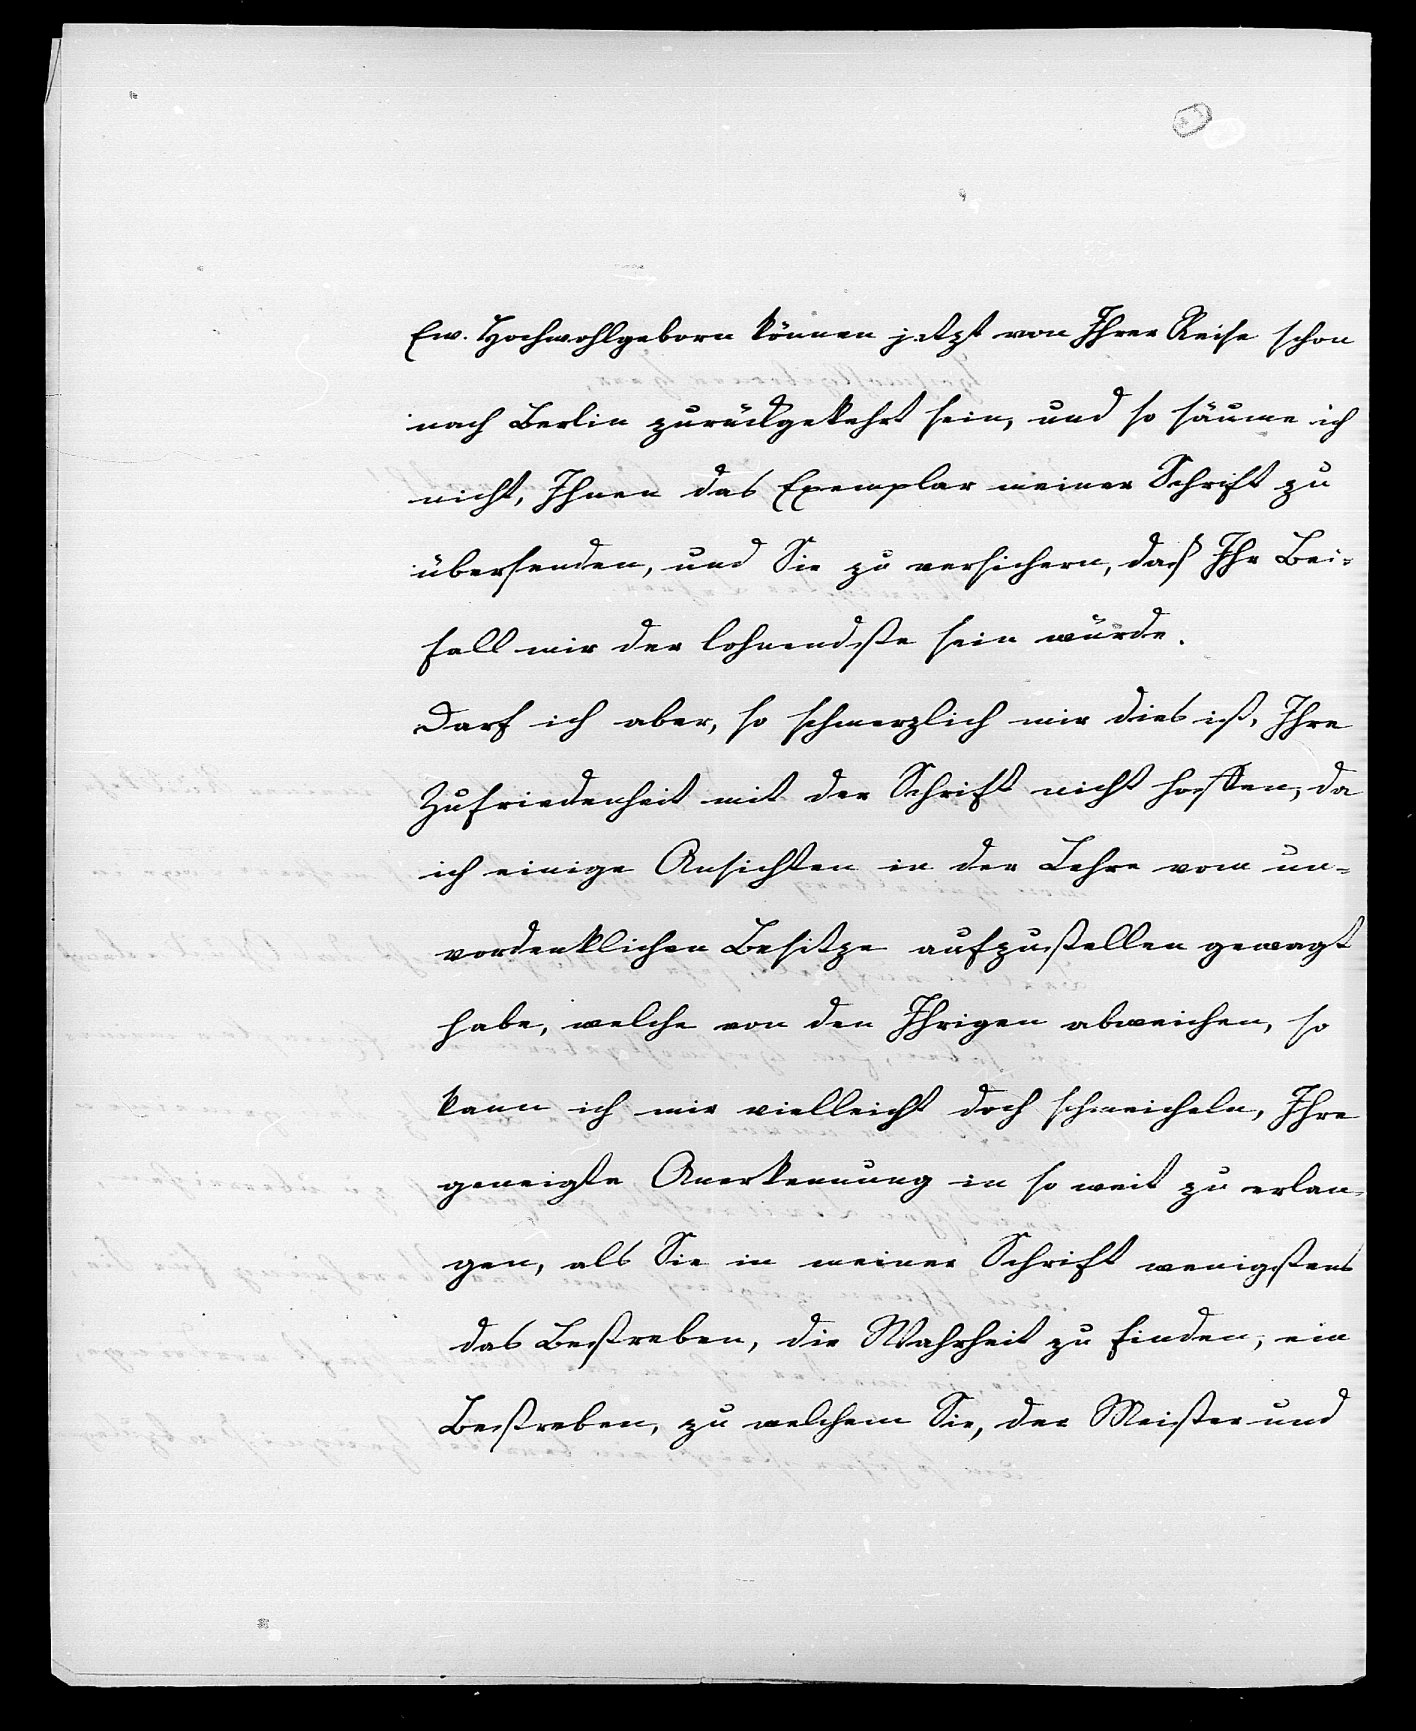 Ew. Hochwohlgeborn können jetzt von Ihrer Reise schon
nach Berlin zurückgekehrt sein, und so säume ich
nicht, Ihnen das Exemplar meiner Schrift zu
übersenden, und Sie zu versichern, daß Ihr Bei-
fall mir der lohnendste sein würde.
Darf ich aber, so schmerzlich mir dies ist, Ihre
Zufriedenheit mit der Schrift nicht hoffen, da
ich einige Ansichten in der Lehre vom un-
vordenklichen Besitze aufzustellen gewagt
habe, welche von den Ihrigen abweichen, so
kann ich mir vielleicht doch schmeicheln, Ihre
geneigte Anerkennung in so weit zu erlan-
gen, als Sie in meiner Schrift wenigstens
das Bestreben, die Wahrheit zu finden, ein
Bestreben, zu welchem Sie, der Meister und